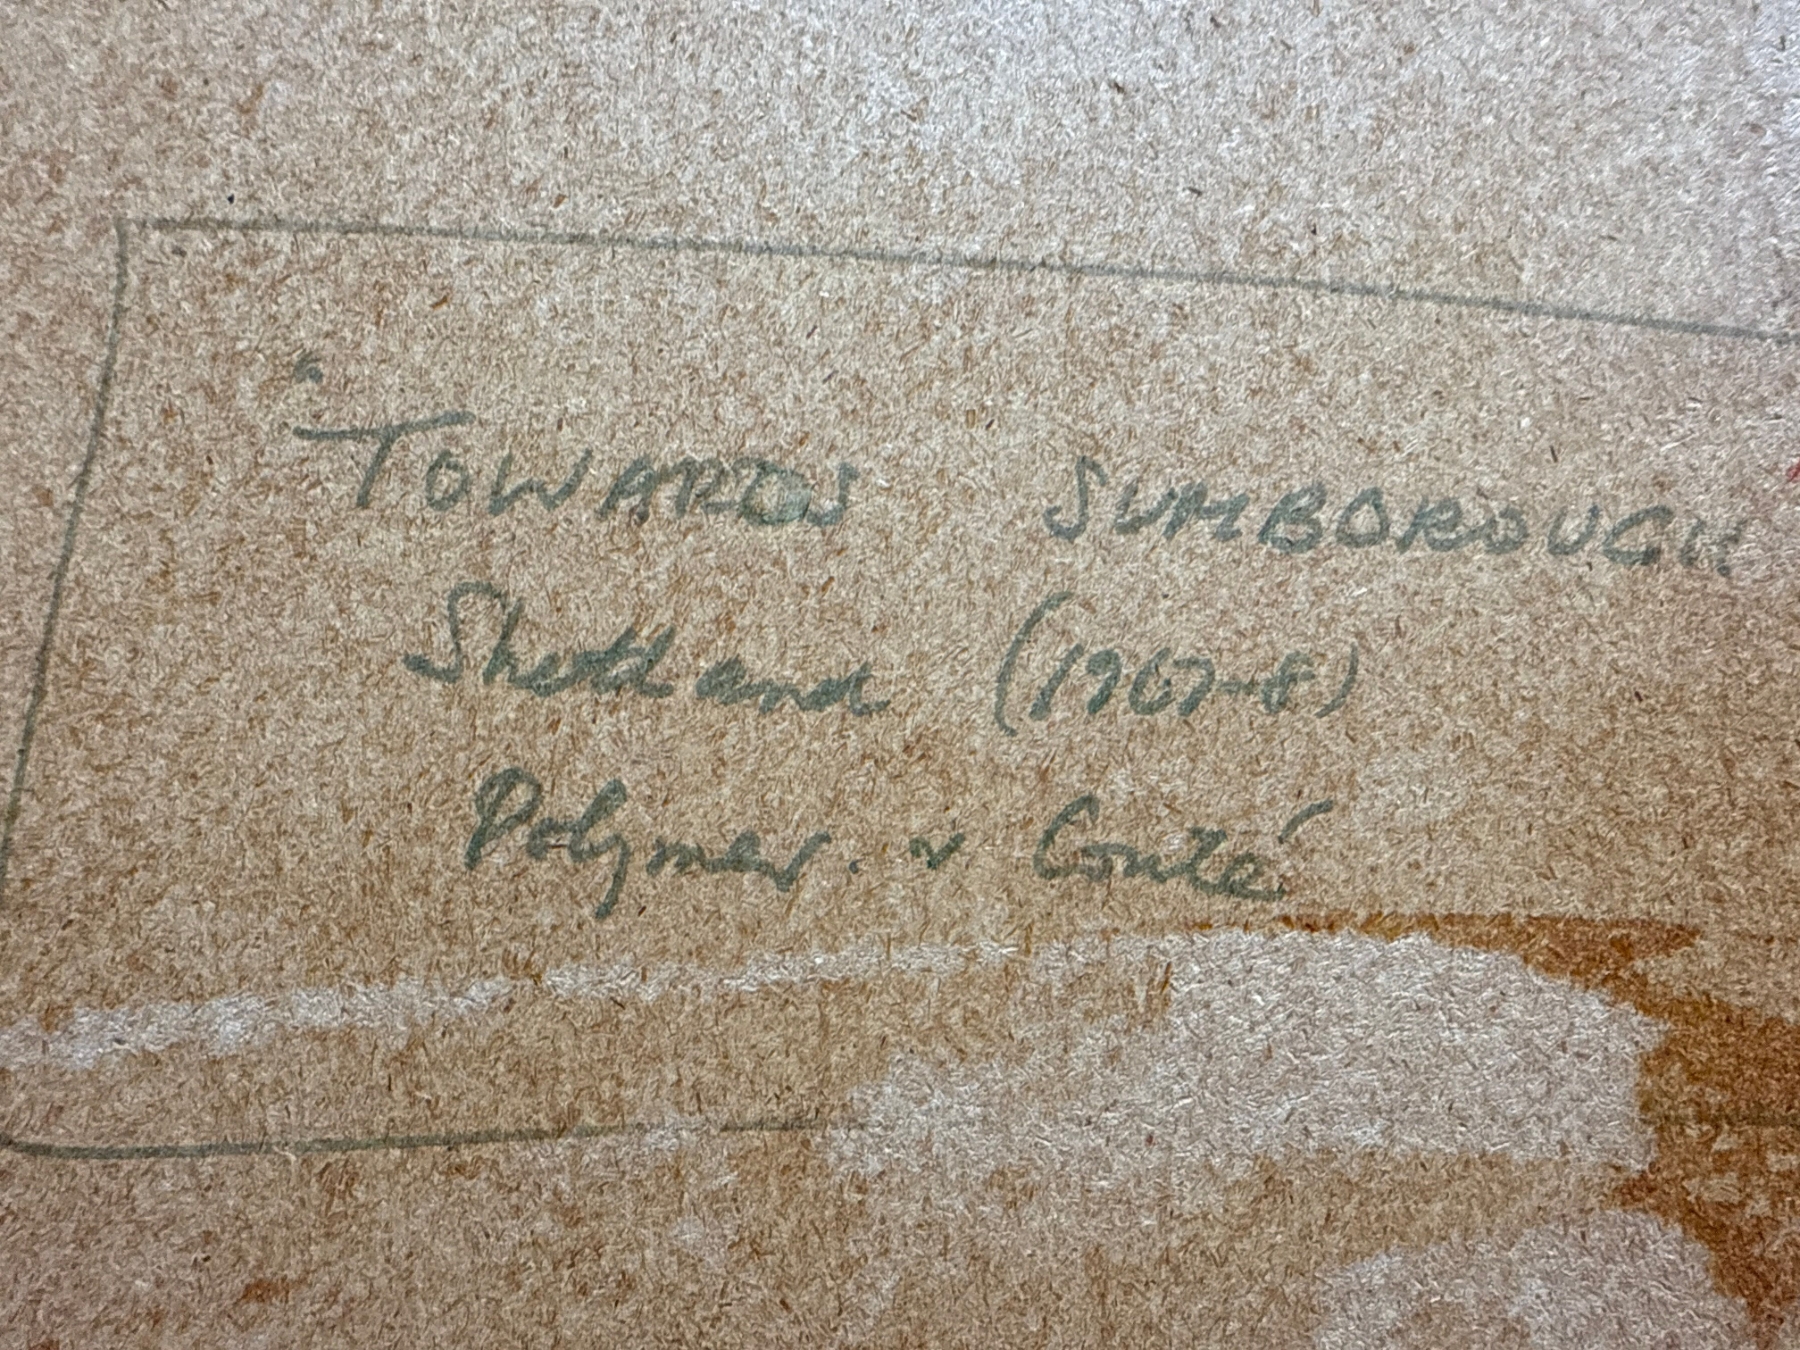 "TOWARDS SUMBOROUGH
Shetland (1967-8)
Polymer. & Conté